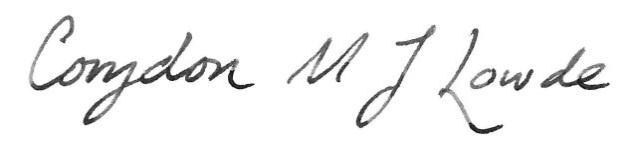 Corydon M J Lowde